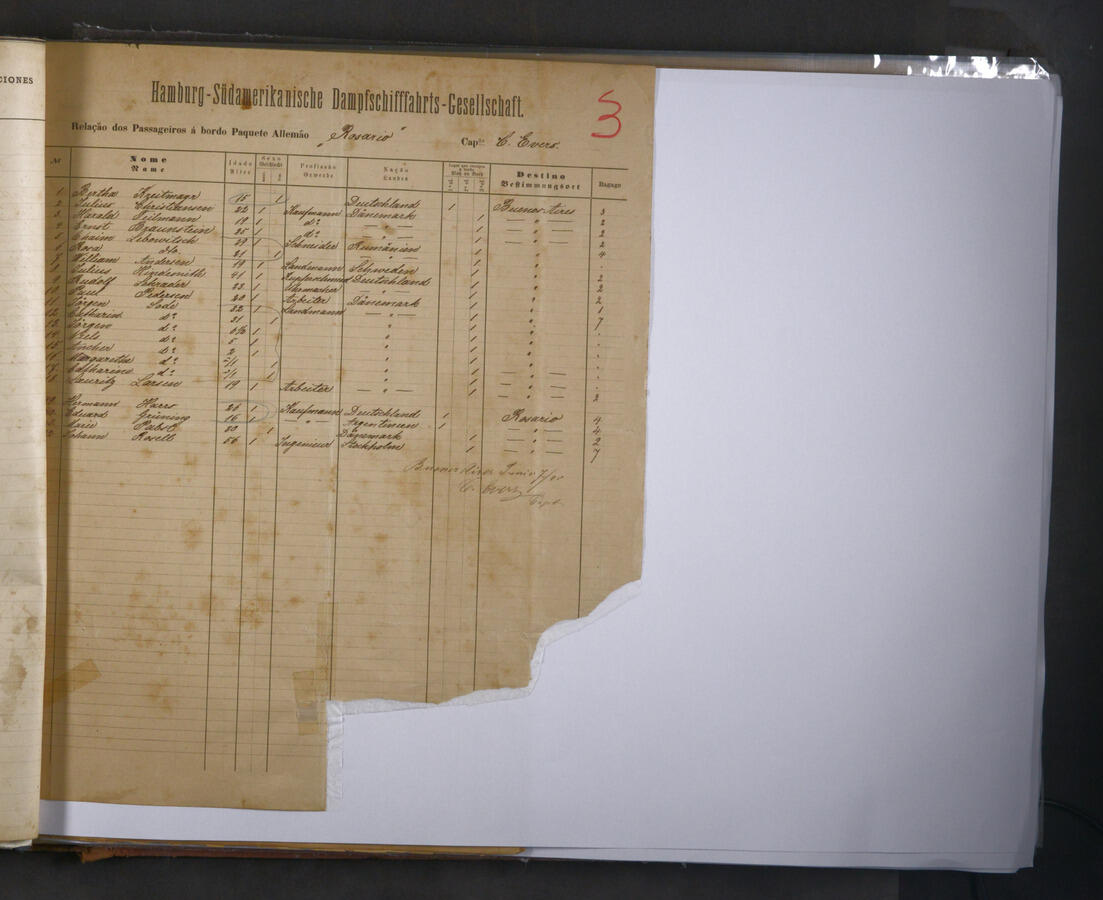 CIONES
Hamburg-Südamerikanische Dampfschifffahrts-Gesellschaft.
3
Relação dos Passageiros á bordo Paquete Allemão „Rosario" Cap. C. Evers.
Nr Nome Name Idade Alter Sexo Geschlecht Profissão Gewerbe Nação Landes Destino Bestimmungsort Bagage
1 Bertha 15 1 Deutschland 1 Buenos-Aires 3
2 Julius Christiansen 22 1 Kaufmann Dänemark 1 — " — 2
3 Harald Teilmann 19 1 d° — " — 1 — " — 2
4 Ernst Braunstein 25 1 d° " 1 — " — 2
5 Chaim Lebowitsch 29 1 Schneider Rumänien 1 " 4
6 Rosa do. 21 1 " 1 "
7 William Andersen 19 1 Landmann Schweden 1 " 2
8 Julius Hindemith 41 1 Kupferschmied Deutschland 1 " 2
9 Rudolf Schrader 23 1 Uhrmacher " 1 " 2
10 Paul Pedersen 20 1 Arbeiter Dänemark 1 " 1
11 Jörgen Bode 32 1 Landmann — " — 1 " 7
12 d° 31 1 " 1 "
13 Jörgen d° 1 " 1 "
14 Niels d° 5 1 " 1 "
15 d° 2 1 " 1 "
16 Margaretha d° 1 " 1 "
17 Catharine d° 1 " 1 — " —
18 Lauritz Larsen 19 1 Arbeiter — " — 1 — " — 2
Hermann Harro 26 1 Kaufmann Deutschland 1 Rosario 4
Eduard Grüning 16 1 — " — Argentinien 1 — " — 4
Marie Pabst 20 1 Dänemark 1 — " — 2
Johann Rosell 56 1 Ingenieur Stockholm 1 — " — 7
Buenos Aires Junio 7/
C. Evers
Capt.